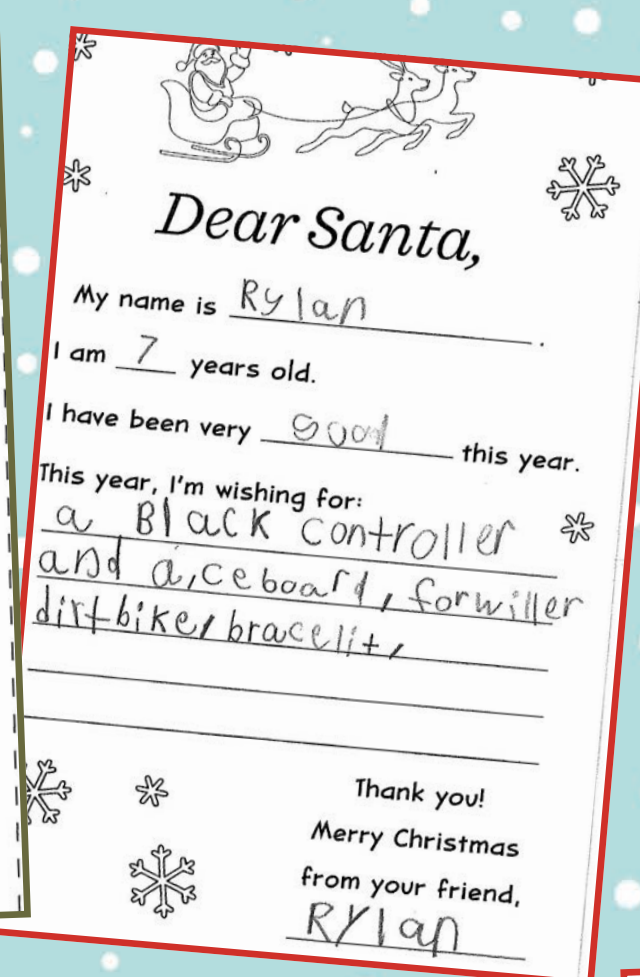 Dear Santa,
My name is Rylan.
I am 7 years old.
I have been very good this year.
This year, I'm wishing for:
a Black controller
and a,ceboard, forwiller
dirtbike, bracelit,
Thank you!
Merry Christmas
from your friend,
Rylan